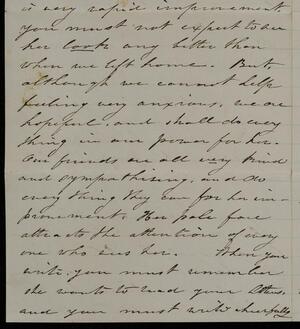 is very rapid improvement
you must not expect to see
her look any better than
when we left home. But,
although we cannot help
feeling very anxious, we are
hopeful, and shall do every
thing in our power for her.
Our friends are all very kind
and sympathising, and do
every thing they can for her im-
provement. Her pale face
attracts the attention of every
one who sees her. When you
write, you must remember
she wants to read your letters,
and you must write cheerfully